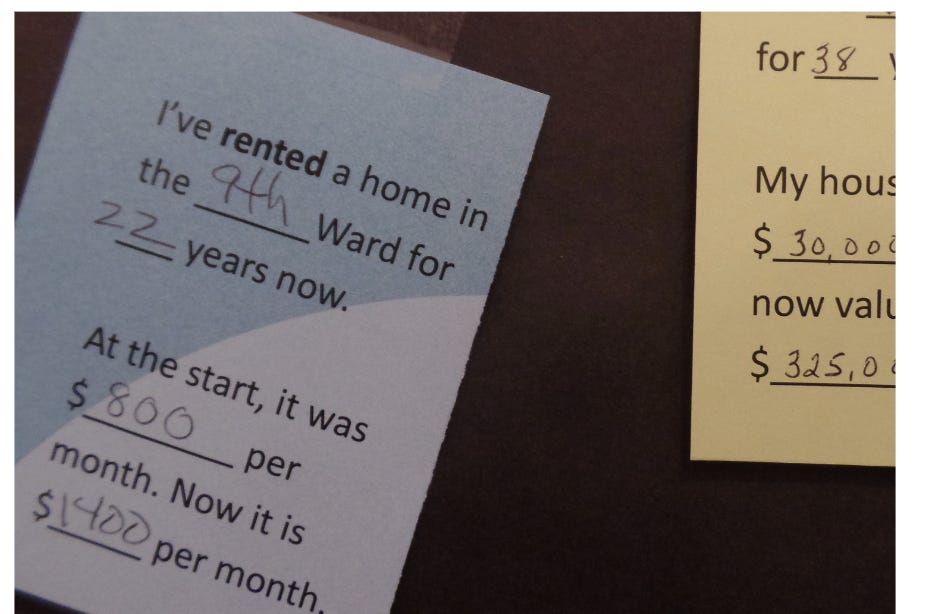 I've rented a home in
the 9th Ward for
22 years now.
At the start, it was
$ 800 per
month. Now it is
$1400 per month.
for 38
My hous
$ 30,000
now valu
$ 325,00